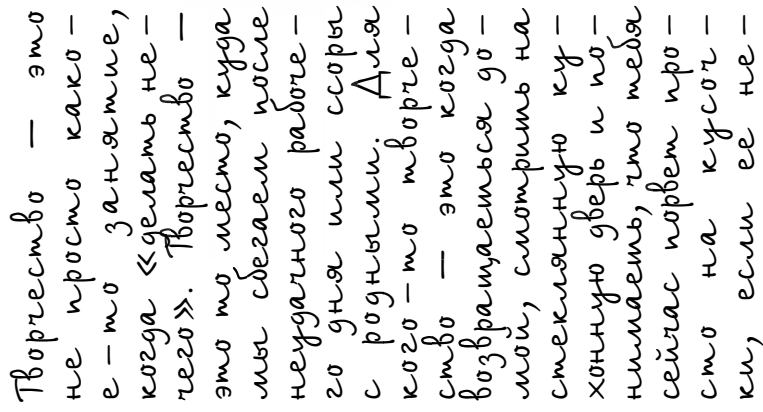 Творчество — это
не просто како-
е-то занятие,
когда «делать не-
чего». Творчество —
это то место, куда
мы сбегаем после
неудачного рабоче-
го дня или ссоры
с родными. Для
кого-то творче-
ство — это когда
возвращаешься до-
мой, смотришь на
стеклянную ку-
хонную дверь и по-
нимаешь, что тебя
сейчас порвет про-
сто на кусоч-
ки, если ее не-